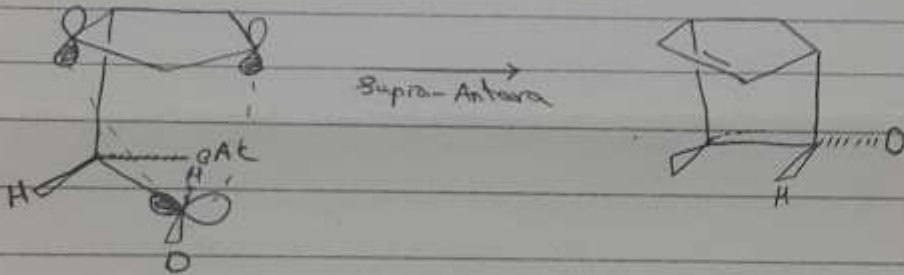 Supra-Antara
OAc
H
H
D
D
H